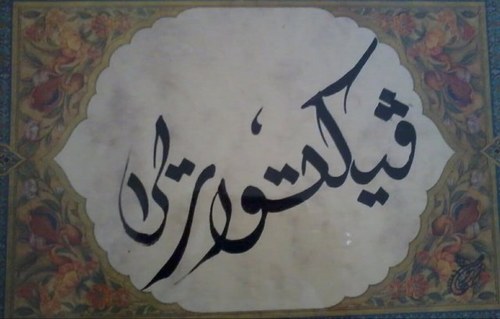 ڤيكتوريا